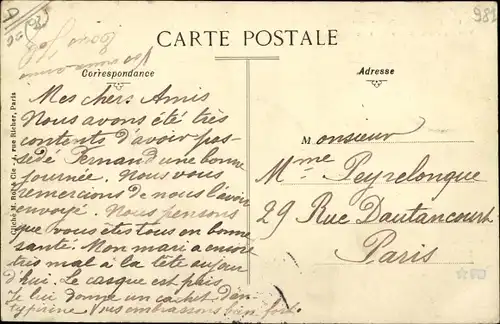 981
CARTE POSTALE
Correspondance
Adresse
Mes chers Amis
Nous avons été très
contents d'avoir pos-
sédé Fernand une bonne
journée. Nous vous
remercions de nous l'avoir
envoyé. Nous pensons
que vous êtes tous en bonne
santé. Mon mari a encore
très mal à la tête aujour
d'hui. Le casque est pris
Je lui donne un cachet d'an
typirine vous embrassons bien fort.
Monsieur
Mme Peyrelongue
29 Rue Dautancourt
Paris
rue Richer, Paris